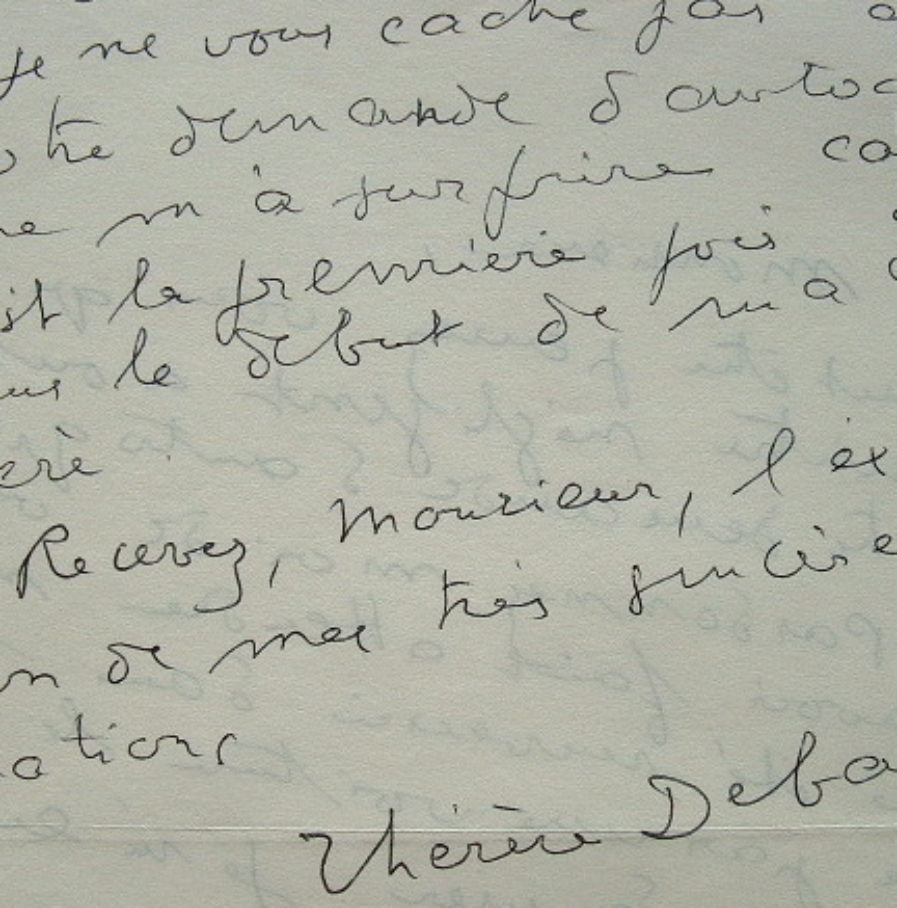 Je ne vous cache pas
otre demande d'autoc
ne m'a surprise ca
st la première fois
uis le début de ma c
ère
Recevez, Monsieur, l'ex
on de mes très sincère
ations
Thérèse Deba